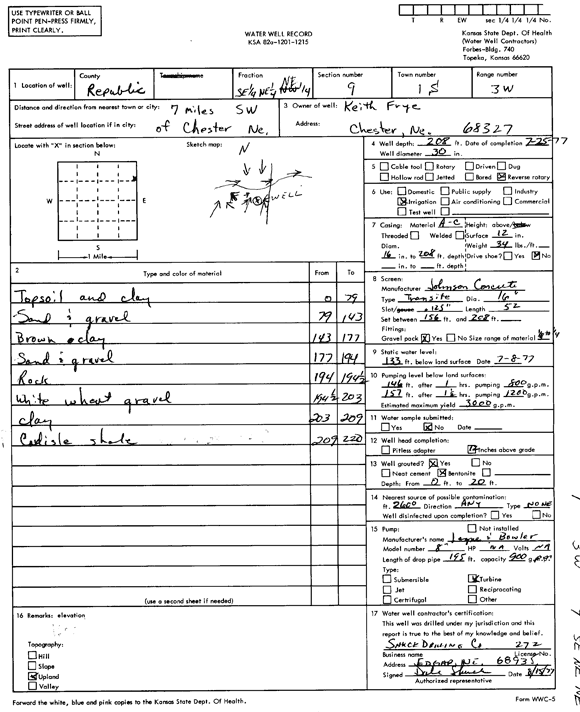 USE TYPEWRITER OR BALL
POINT PEN-PRESS FIRMLY,
PRINT CLEARLY.
T R EW sec 1/4 1/4 1/4 No.
WATER WELL RECORD
KSA 82a-1201-1215
Kansas State Dept. Of Health
(Water Well Contractors)
Forbes-Bldg. 740
Topeka, Kansas 66620
1 Location of well:
County
Republic
Fraction
SE¼ NE¼ NE 1/4
Section number
9
Town number
1 S
Range number
3 W
Distance and direction from nearest town or city: 7 miles SW
Street address of well location if in city: of Chester Ne.
3 Owner of well: Keith Frye
Address: Chester, Ne. 68327
Locate with "X" in section below:
N
W E
S
1 Mile
Sketch map:
N
WELL
2 Type and color of material From To
Topsoil and clay 0 79
Sand & gravel 79 143
Brown clay 143 177
Sand & gravel 177 194
Rock 194 194½
White wheat gravel 194½ 203
clay 203 209
Carlisle shale 209 220
(use a second sheet if needed)
4 Well depth: 208 ft. Date of completion 7-25-77
Well diameter 30 in.
5 Cable tool Rotary Driven Dug
Hollow rod Jetted Bored Reverse rotary
6 Use: Domestic Public supply Industry
Irrigation Air conditioning Commercial
Test well
7 Casing: Material A-C Height: above/below
Threaded Welded Surface 12 in.
Diam. Weight 34 lbs./ft.
16 in. to 208 ft. depth Drive shoe? Yes No
in. to ft. depth
8 Screen:
Manufacturer Johnson Concrete
Type Transite Dia. 16"
Slot/gauze .125" Length 52
Set between 156 ft. and 208 ft.
Fittings:
Gravel pack Yes No Size range of material
9 Static water level:
133 ft. below land surface Date 7-8-77
10 Pumping level below land surfaces:
146 ft. after 1 hrs. pumping 800 g.p.m.
157 ft. after 1½ hrs. pumping 1200 g.p.m.
Estimated maximum yield 3000 g.p.m.
11 Water sample submitted:
Yes No Date
12 Well head completion:
Pitless adapter 12 Inches above grade
13 Well grouted? Yes No
Neat cement Bentonite
Depth: From 0 ft. to 20 ft.
14 Nearest source of possible contamination:
ft. 2600 Direction ANY Type NONE
Well disinfected upon completion? Yes No
15 Pump: Not installed
Manufacturer's name Layne & Bowler
Model number 8" HP NA Volts NA
Length of drop pipe 195 ft. capacity 900 g.p.m.
Type:
Submersible Turbine
Jet Reciprocating
Certrifugal Other
16 Remarks: elevation
Topography:
Hill
Slope
Upland
Valley
17 Water well contractor's certification:
This well was drilled under my jurisdiction and this
report is true to the best of my knowledge and belief.
272
Business name License No.
Address EDGAR, NE. 68935
Signed Date 8/15/77
Authorized representative
Forward the white, blue and pink copies to the Kansas State Dept. Of Health.
Form WWC-5
1 3W 9 SE NE NE